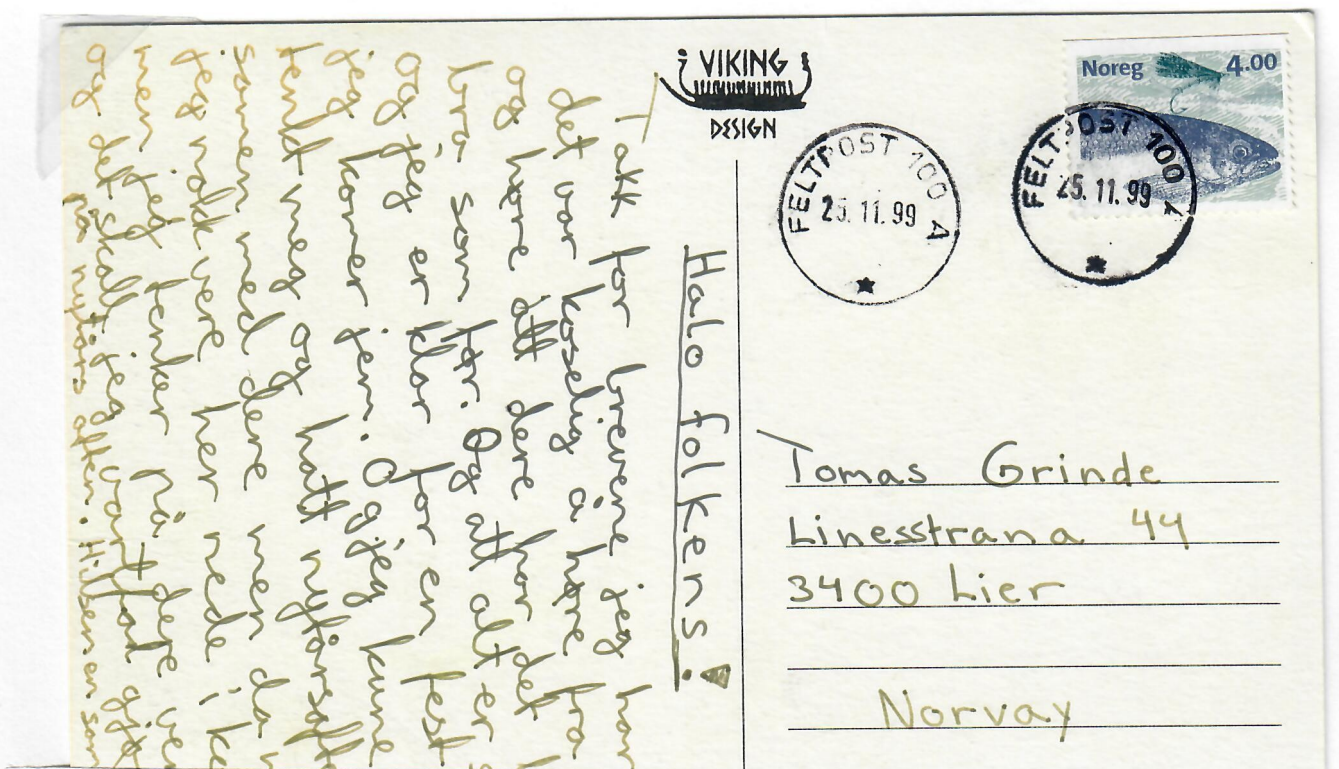 VIKING
DESIGN
Noreg 4.00
FELTPOST 100 A
25.11.99
FELTPOST 100 A
25.11.99
Halo folkens!
Takk for brevene jeg har
det var koselig å høre fra
og høre att dere har det
bra som før. Og att alt er
og jeg er klar for en fest
jeg komer jem. Og jeg kune
tenkt meg og hatt nyttårsaft
samen med dere men da
jeg nokk vere her nede i
men jeg tenker på dere
og det skall jeg
på nyttårs aften. Hilsen en som
Tomas Grinde
Linesstrana 44
3400 Lier
Norvay